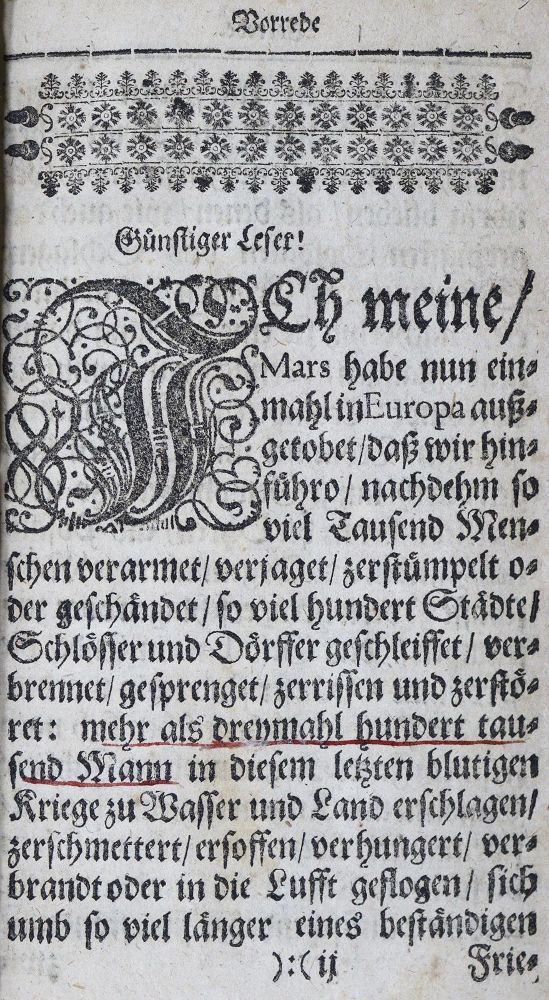 Vorrede
Günstiger Leser!
ICh meine/
Mars habe nun ein⸗
mahl in Europa auß⸗
getobet/daß wir hin⸗
führo/ nachdehm so
viel Tausend Men⸗
schen verarmet/ verjaget/ zerstümpelt o⸗
der geschändet/ so viel hundert Städte/
Schlösser und Dörffer geschleiffet/ ver⸗
brennet/ gesprenget/ zerrissen und zerstö⸗
ret: mehr als dreymahl hundert tau⸗
send Mann in diesem letzten blutigen
Kriege zu Wasser und Land erschlagen/
zerschmettert/ ersoffen/ verhungert/ ver⸗
brandt oder in die Lufft geflogen/ sich
umb so viel länger eines beständigen
):( ij Frie⸗